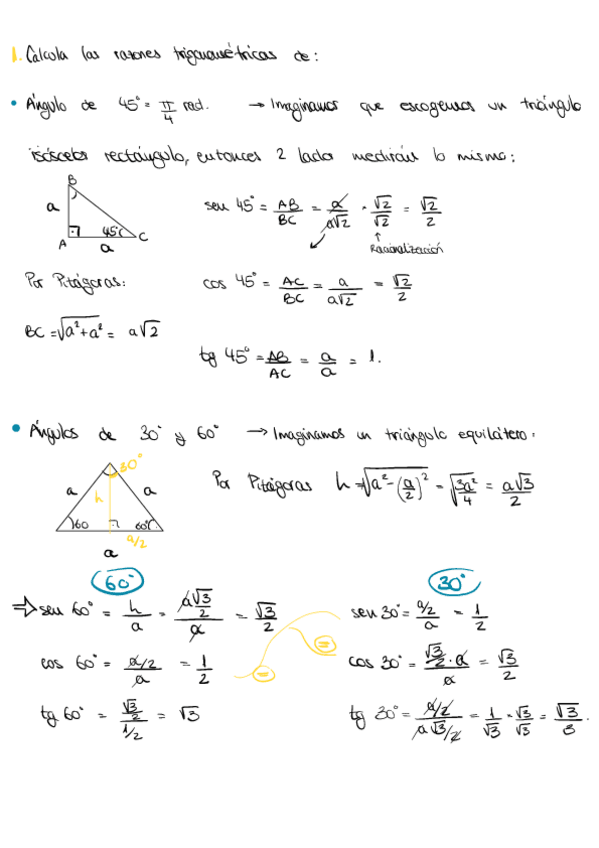 1. Calcula las razones trigonométricas de:
• Ángulo de 45° = π/4 rad. → Imaginamos que escogemos un triángulo
isósceles rectángulo, entonces 2 lados medirán lo mismo:
B
a
A 45° C
a
sen 45° = AB/BC = a/a√2 · √2/√2 = √2/2
↑
Racionalización
Por Pitágoras:
cos 45° = AC/BC = a/a√2 = √2/2
BC = √a²+a² = a√2
tg 45° = AB/AC = a/a = 1.
• Ángulos de 30° y 60° → Imaginamos un triángulo equilátero:
30°
a h a
60 60°
a/2
a
Por Pitágoras h = √a²-(a/2)² = √3a²/4 = a√3/2
60° 30°
⇒ sen 60° = h/a = a√3/2/a = √3/2
sen 30° = a/2/a = 1/2
cos 60° = a/2/a = 1/2
= =
cos 30° = √3/2·a/a = √3/2
tg 60° = √3/2/1/2 = √3
tg 30° = a/2/a√3/2 = 1/√3 · √3/√3 = √3/3.